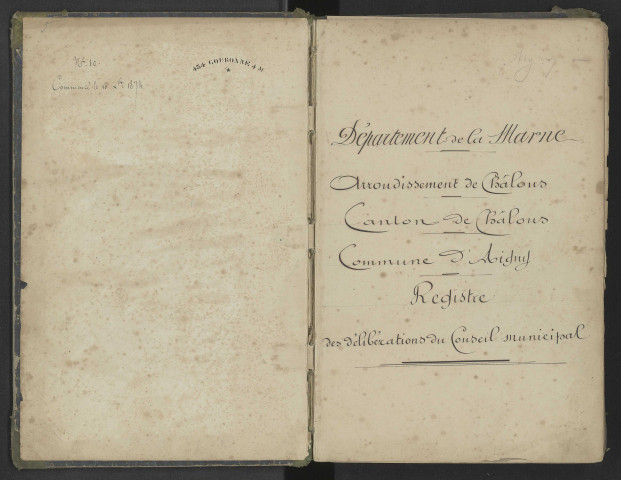 No 10
Commencé le 1874
454 COURONNE 4 M
Département de la Marne
Arrondissement de Châlons
Canton de Châlons
Commune d'Aigny
Registre
des délibérations du Conseil municipal